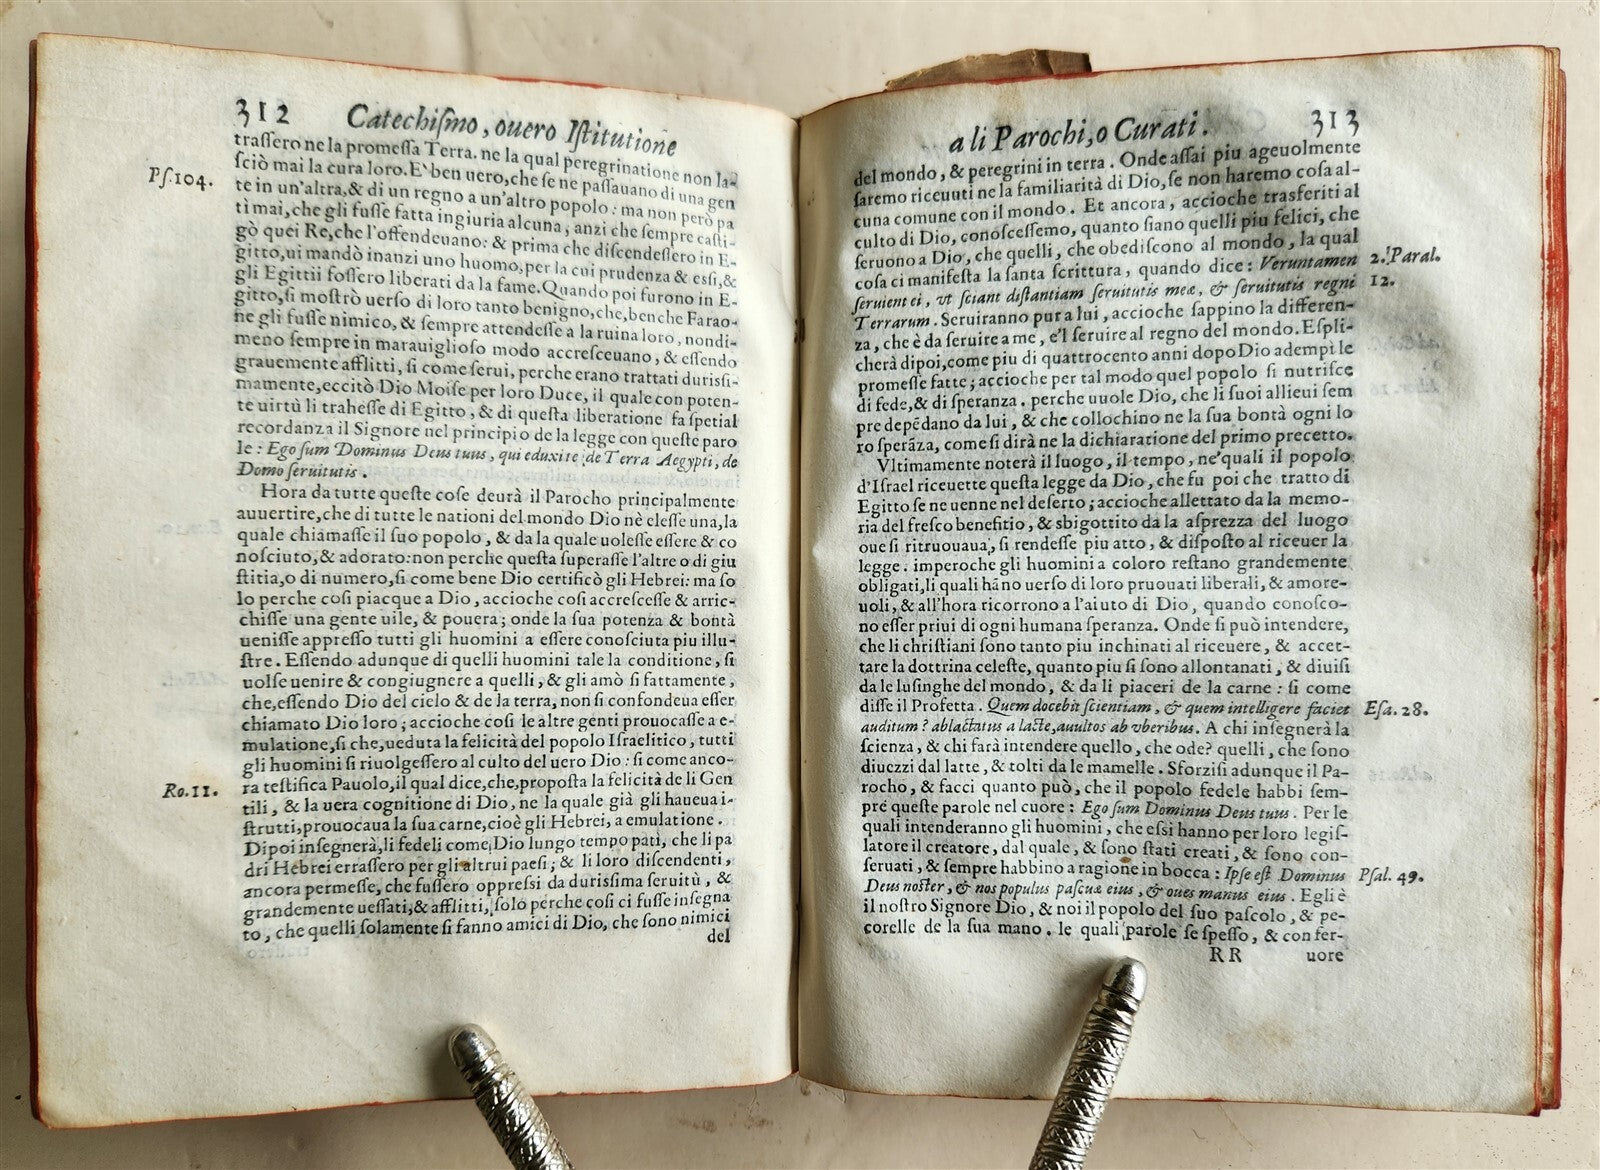 312 Catechiſmo, ouero Iſtitutione
traſſero ne la promeſſa Terra. ne la qual peregrinatione non la-
ſciò mai la cura loro. E' ben uero, che ſe ne paſſauano di una gen
Pſ. 104.
te in un'altra, & di un regno a un'altro popolo: ma non però pa
tì mai, che gli fuſſe fatta ingiuria alcuna, anzi che ſempre caſti-
gò quei Re, che l'offendeuano: & prima che diſcendeſſero in E-
gitto, ui mandò inanzi uno huomo, per la cui prudenza & eſsi, &
gli Egittii foſſero liberati da la fame. Quando poi furono in E-
gitto, ſi moſtrò uerſo di loro tanto benigno, che, benche Farao-
ne gli fuſſe nimico, & ſempre attendeſſe a la ruina loro, nondi-
meno ſempre in marauiglioſo modo accreſceuano, & eſſendo
grauemente afflitti, ſi come ſerui, perche erano trattati duriſsi-
mamente, eccitò Dio Moiſe per loro Duce, il quale con poten-
te uirtù li traheſſe di Egitto, & di queſta liberatione fa ſpetial
recordanza il Signore nel principio de la legge con queſte paro
le: Ego ſum Dominus Deus tuus, qui eduxi te de Terra Aegypti, de
Domo ſeruitutis.
Hora da tutte queſte coſe deurà il Parocho principalmente
auuertire, che di tutte le nationi del mondo Dio nè eleſſe una, la
quale chiamaſſe il ſuo popolo, & da la quale uoleſſe eſſere & co
noſciuto, & adorato: non perche queſta ſuperaſſe l'altre o di giu
ſtitia, o di numero, ſi come bene Dio certificò gli Hebrei: ma ſo
lo perche coſi piacque a Dio, accioche coſi accreſceſſe & arric-
chiſſe una gente uile, & pouera; onde la ſua potenza & bontà
ueniſſe appreſſo tutti gli huomini a eſſere conoſciuta piu illu-
ſtre. Eſſendo adunque di quelli huomini tale la conditione, ſi
uolſe uenire & congiugnere a quelli, & gli amò ſi fattamente,
che, eſſendo Dio del cielo & de la terra, non ſi confondeua eſſer
chiamato Dio loro; accioche coſi le altre genti prouocaſſe a e-
mulatione, ſi che, ueduta la felicità del popolo Iſraelitico, tutti
gli huomini ſi riuolgeſſero al culto del uero Dio: ſi come anco-
ra teſtifica Pauolo, il qual dice, che, propoſta la felicità de li Gen
Ro. 11.
tili, & la uera cognitione di Dio, ne la quale già gli haueua i-
ſtrutti, prouocaua la ſua carne, cioè gli Hebrei, a emulatione.
Dipoi inſegnerà, li fedeli come Dio lungo tempo patì, che li pa
dri Hebrei erraſſero per gli altrui paeſi; & li loro diſcendenti,
ancora permeſſe, che fuſſero oppreſsi da duriſsima ſeruitù, &
grandemente ueſſati, & afflitti, ſolo perche coſi ci fuſſe inſegna
to, che quelli ſolamente ſi fanno amici di Dio, che ſono nimici
del
a li Parochi, o Curati. 313
del mondo, & peregrini in terra. Onde aſſai piu ageuolmente
ſaremo riceuuti ne la familiarità di Dio, ſe non haremo coſa al-
cuna comune con il mondo. Et ancora, accioche trasferiti al
culto di Dio, conoſceſſemo, quanto ſiano quelli piu felici, che
ſeruono a Dio, che quelli, che obediſcono al mondo, la qual
coſa ci manifeſta la ſanta ſcrittura, quando dice: Veruntamen
2. Paral.
12.
ſeruient ei, vt ſciant diſtantiam ſeruitutis meæ, & ſeruitutis regni
Terrarum. Seruiranno pur a lui, accioche ſappino la differen-
za, che è da ſeruire a me, e'l ſeruire al regno del mondo. Eſpli-
cherà dipoi, come piu di quattrocento anni dopo Dio adempì le
promeſſe fatte; accioche per tal modo quel popolo ſi nutriſce
di fede, & di ſperanza. perche uuole Dio, che li ſuoi allieui ſem
pre depēdano da lui, & che collochino ne la ſua bontà ogni lo
ro ſperāza, come ſi dirà ne la dichiaratione del primo precetto.
Vltimamente noterà il luogo, il tempo, ne' quali il popolo
d'Iſrael riceuette queſta legge da Dio, che fu poi che tratto di
Egitto ſe ne uenne nel deſerto; accioche allettato da la memo-
ria del freſco benefitio, & sbigottito da la aſprezza del luogo
oue ſi ritruouaua, ſi rendeſſe piu atto, & diſpoſto al riceuer la
legge. imperoche gli huomini a coloro reſtano grandemente
obligati, li quali hāno uerſo di loro pruouati liberali, & amore-
uoli, & all'hora ricorrono a l'aiuto di Dio, quando conoſco-
no eſſer priui di ogni humana ſperanza. Onde ſi può intendere,
che li chriſtiani ſono tanto piu inchinati al riceuere, & accet-
tare la dottrina celeſte, quanto piu ſi ſono allontanati, & diuiſi
da le luſinghe del mondo, & da li piaceri de la carne: ſi come
diſſe il Profetta. Quem docebit ſcientiam, & quem intelligere faciet
Eſa. 28.
auditum? ablactatus a lacte, auultos ab vberibus. A chi inſegnerà la
ſcienza, & chi farà intendere quello, che ode? quelli, che ſono
diuezzi dal latte, & tolti da le mamelle. Sforziſi adunque il Pa-
rocho, & facci quanto può, che il popolo fedele habbi ſem-
pre queſte parole nel cuore: Ego ſum Dominus Deus tuus. Per le
quali intenderanno gli huomini, che eſsi hanno per loro legiſ-
latore il creatore, dal quale, & ſono ſtati creati, & ſono con-
ſeruati, & ſempre habbino a ragione in bocca: Ipſe eſt Dominus
Pſal. 49.
Deus noſter, & nos populus paſcuæ eius, & oues manus eius. Egli è
il noſtro Signore Dio, & noi il popolo del ſuo paſcolo, & pe-
corelle de la ſua mano. le quali parole ſe ſpeſſo, & con fer-
RR uore